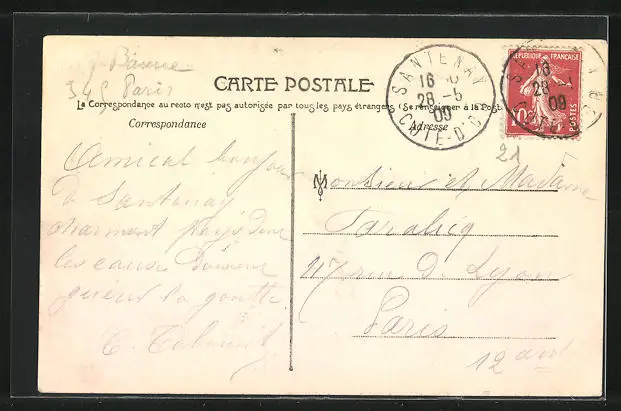 Baune
345 Paris
CARTE POSTALE
La Correspondance au recto n'est pas autorisée par tous les pays étrangers (Se renseigner à la Post
Correspondance
Adresse
SANTENAY
16
28 - 5
09
COTE-D'O
REPUBLIQUE FRANÇAISE
10c
POSTES
16
28
09
21
Amical bonjour
de Santenay
charmant pays dont
les eaux
la goutte
Monsieur et Madame
47 rue de Lyon
Paris
12 arrt